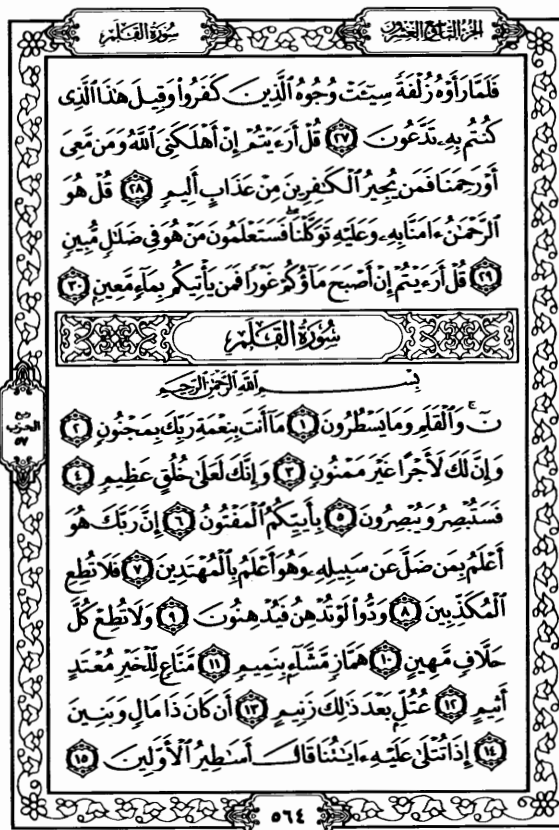 الجزء التاسع والعشرون
سورة القلم
فَلَمَّا رَأَوْهُ زُلْفَةً سِيٓـَٔتْ وُجُوهُ ٱلَّذِينَ كَفَرُواْ وَقِيلَ هَٰذَا ٱلَّذِى
كُنتُم بِهِۦ تَدَّعُونَ ٢٧ قُلْ أَرَءَيْتُمْ إِنْ أَهْلَكَنِىَ ٱللَّهُ وَمَن مَّعِىَ
أَوْ رَحِمَنَا فَمَن يُجِيرُ ٱلْكَٰفِرِينَ مِنْ عَذَابٍ أَلِيمٍ ٢٨ قُلْ هُوَ
ٱلرَّحْمَٰنُ ءَامَنَّا بِهِۦ وَعَلَيْهِ تَوَكَّلْنَا ۖ فَسَتَعْلَمُونَ مَنْ هُوَ فِى ضَلَٰلٍ مُّبِينٍ
٢٩ قُلْ أَرَءَيْتُمْ إِنْ أَصْبَحَ مَآؤُكُمْ غَوْرًا فَمَن يَأْتِيكُم بِمَآءٍ مَّعِينٍۭ ٣٠
سُورَةُ القَلَمِ
بِسْمِ ٱللَّهِ ٱلرَّحْمَٰنِ ٱلرَّحِيمِ
نٓ ۚ وَٱلْقَلَمِ وَمَا يَسْطُرُونَ ١ مَآ أَنتَ بِنِعْمَةِ رَبِّكَ بِمَجْنُونٍ ٢
وَإِنَّ لَكَ لَأَجْرًا غَيْرَ مَمْنُونٍ ٣ وَإِنَّكَ لَعَلَىٰ خُلُقٍ عَظِيمٍ ٤
فَسَتُبْصِرُ وَيُبْصِرُونَ ٥ بِأَييِّكُمُ ٱلْمَفْتُونُ ٦ إِنَّ رَبَّكَ هُوَ
أَعْلَمُ بِمَن ضَلَّ عَن سَبِيلِهِۦ وَهُوَ أَعْلَمُ بِٱلْمُهْتَدِينَ ٧ فَلَا تُطِعِ
ٱلْمُكَذِّبِينَ ٨ وَدُّواْ لَوْ تُدْهِنُ فَيُدْهِنُونَ ٩ وَلَا تُطِعْ كُلَّ
حَلَّافٍ مَّهِينٍ ١٠ هَمَّازٍ مَّشَّآءٍۭ بِنَمِيمٍ ١١ مَّنَّاعٍ لِّلْخَيْرِ مُعْتَدٍ
أَثِيمٍ ١٢ عُتُلٍّۭ بَعْدَ ذَٰلِكَ زَنِيمٍ ١٣ أَن كَانَ ذَا مَالٍ وَبَنِينَ
١٤ إِذَا تُتْلَىٰ عَلَيْهِ ءَايَٰتُنَا قَالَ أَسَٰطِيرُ ٱلْأَوَّلِينَ ١٥
ربع
الحزب
٥٧
٥٦٤